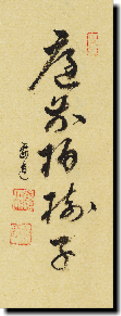 庭前柏樹子